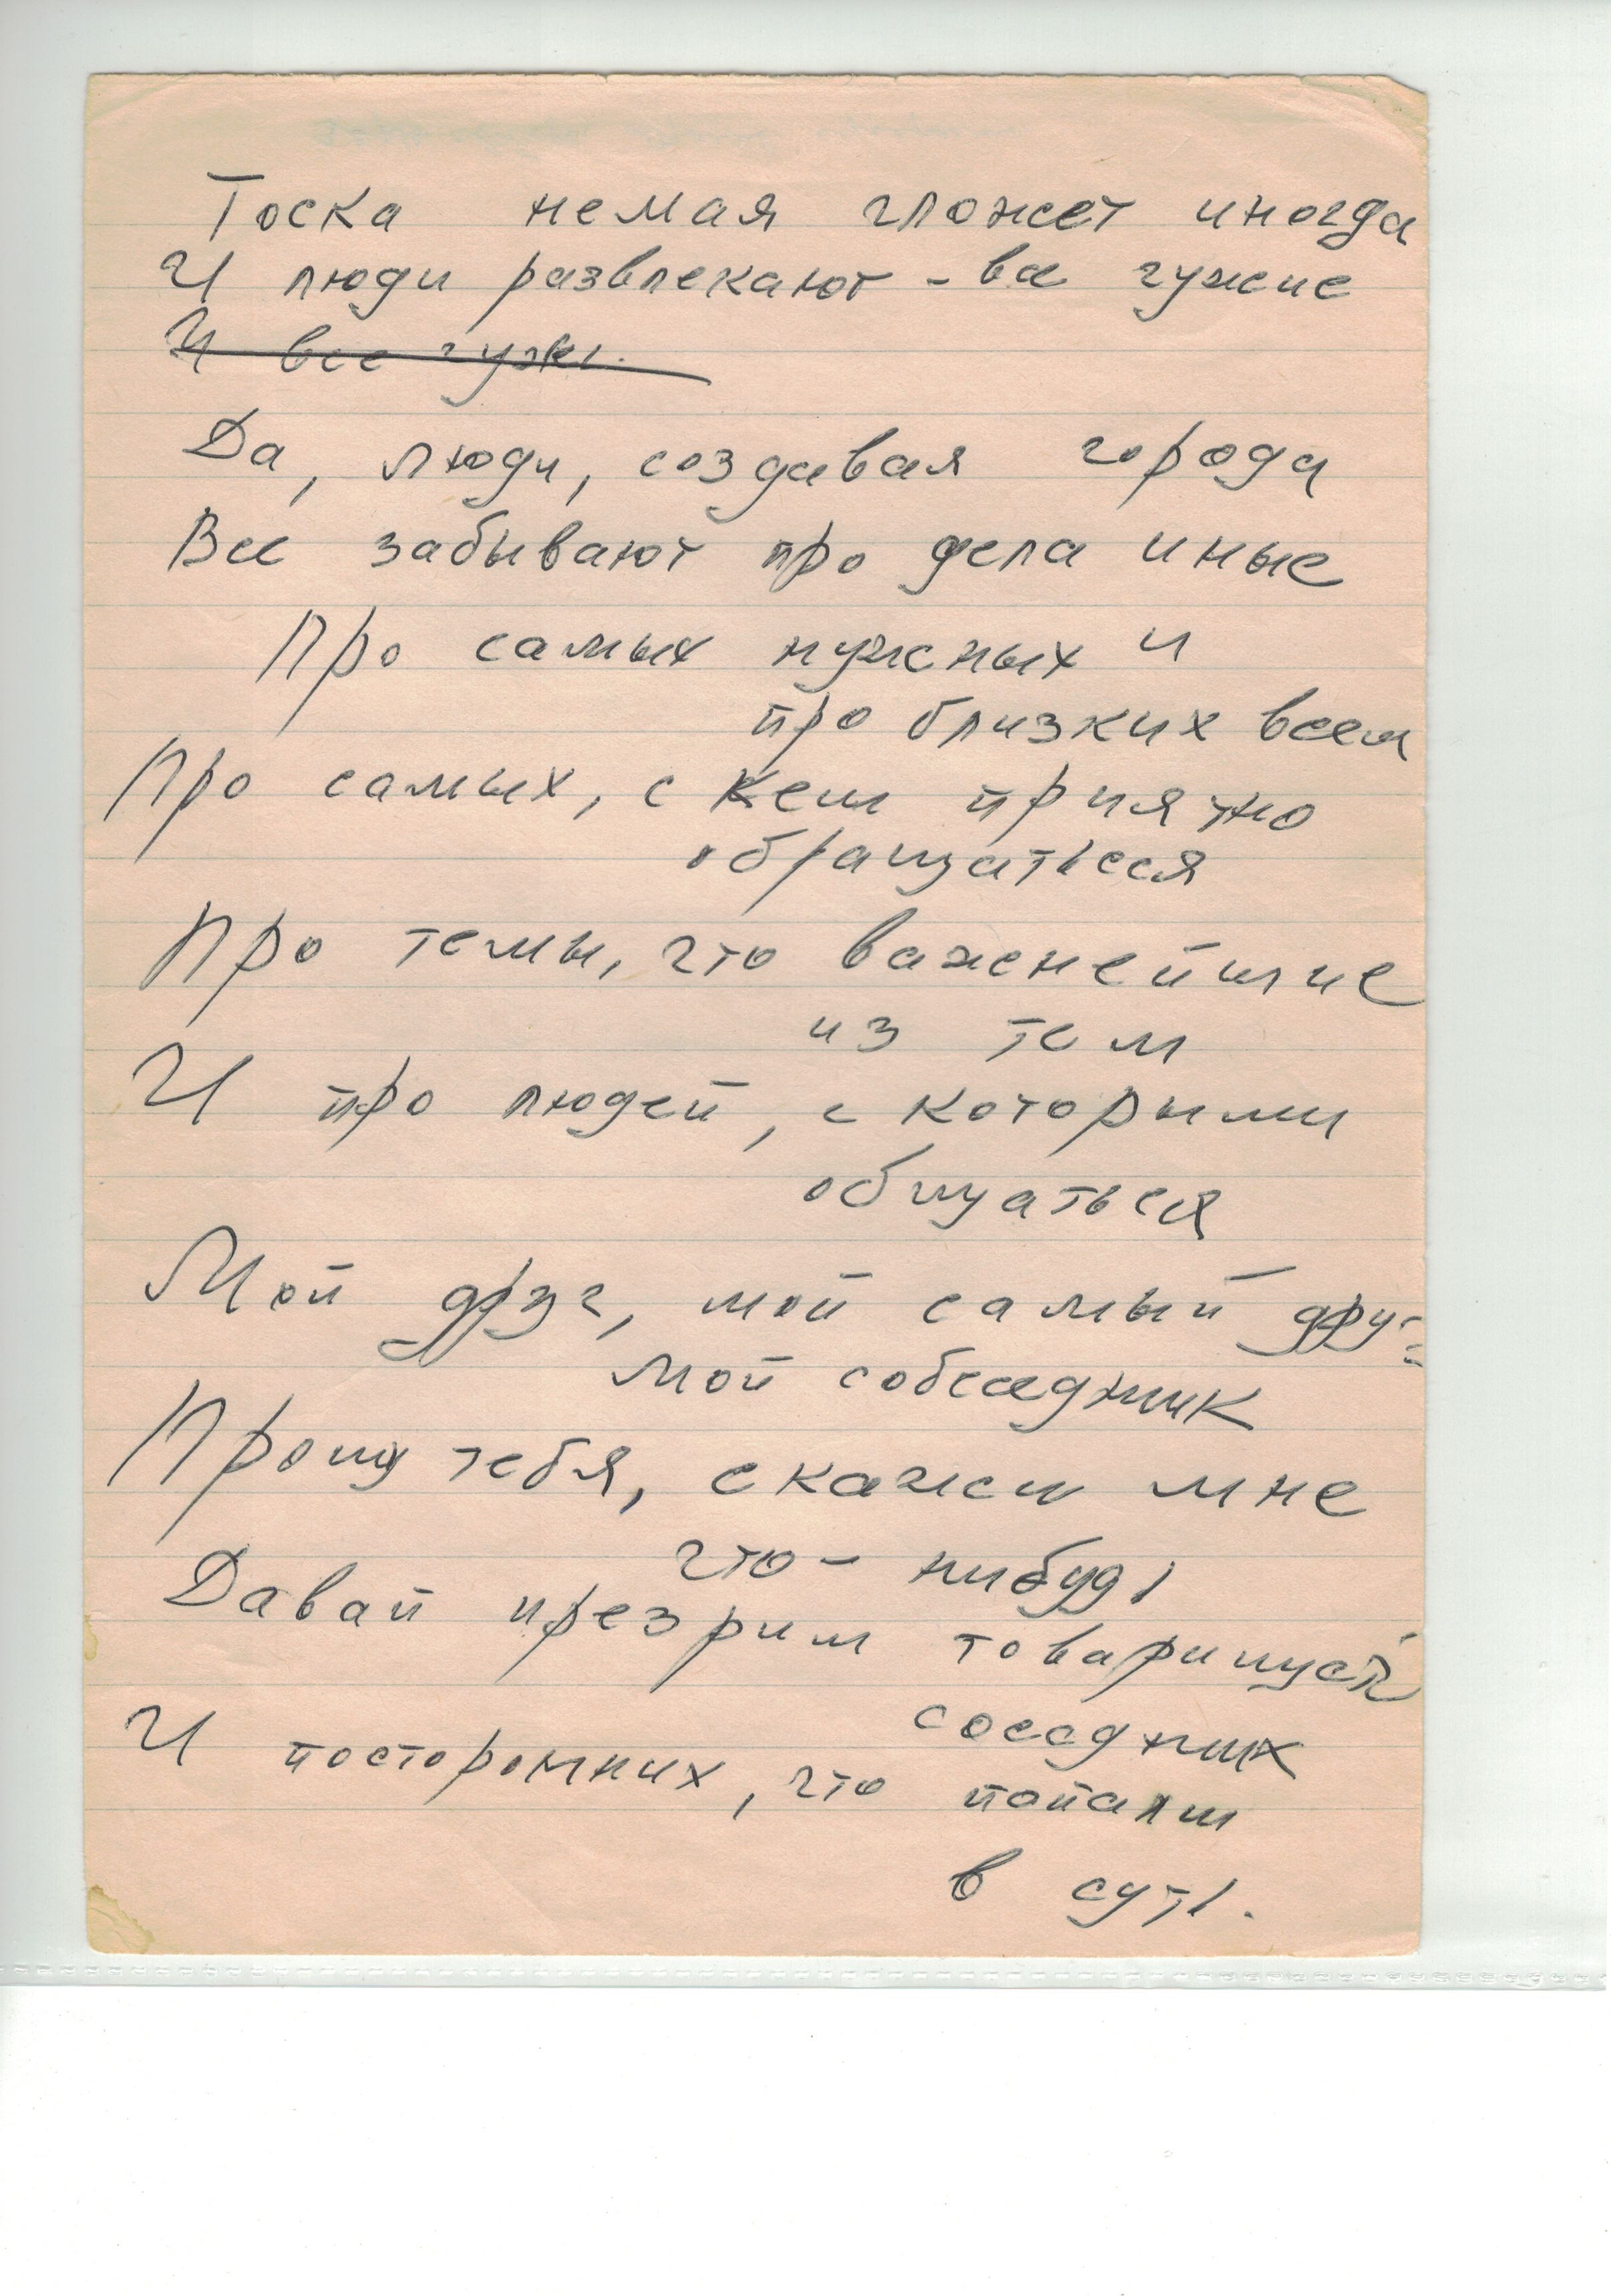 Тоска немая гложет иногда
И люди развлекают - все чужие
И все чужи.
Да, люди, создавая города
Все забывают про дела иные
Про самых нужных и
про близких всем
Про самых, с кем приятно
обращаться
Про темы, что важнейшие
из тем
И про людей, с которыми
общаться
Мой друг, мой самый друг
Мой собеседник
Прошу тебя, скажи мне
что-нибудь
Давай презрим товарищей
соседних
И посторонних, что попали
в суть.